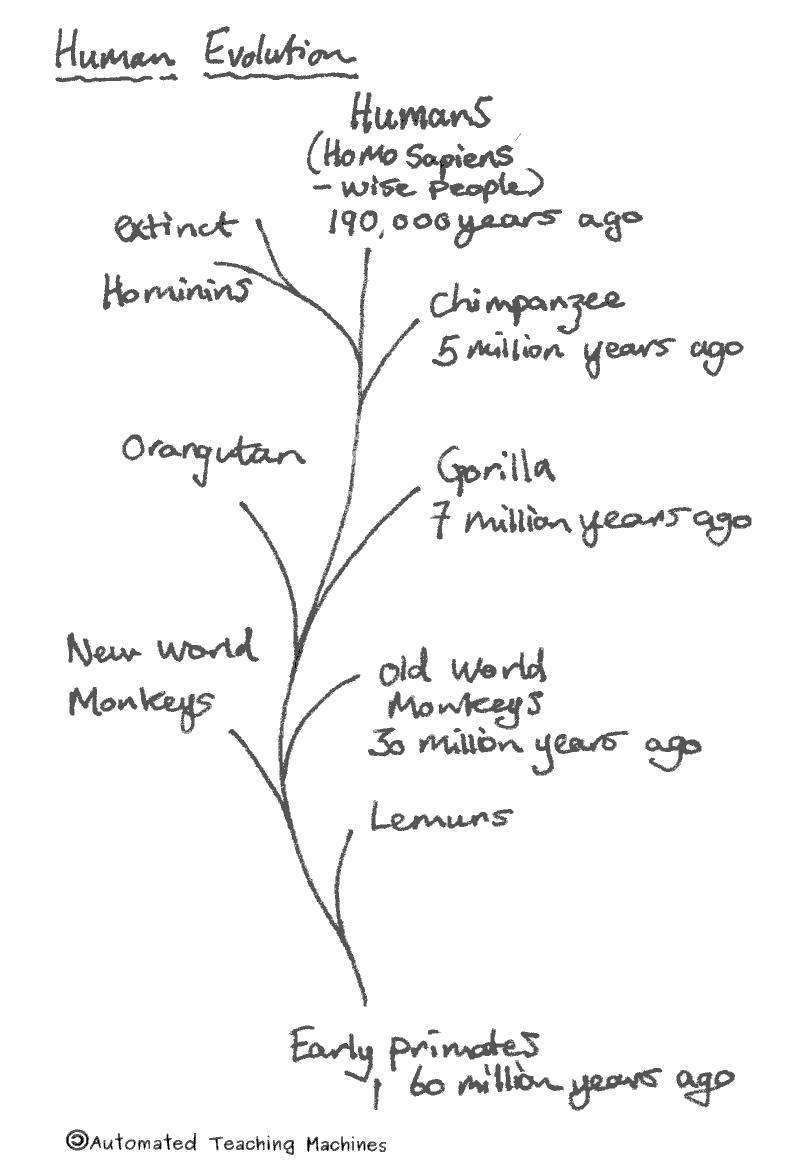 Human Evolution
Humans
(Homo Sapiens
- wise people)
190,000 years ago
extinct
Hominins
Chimpanzee
5 million years ago
Orangutan
Gorilla
7 million years ago
New world
Monkeys
Old World
Monkeys
30 million years ago
Lemurs
Early primates
60 million years ago
©Automated Teaching Machines